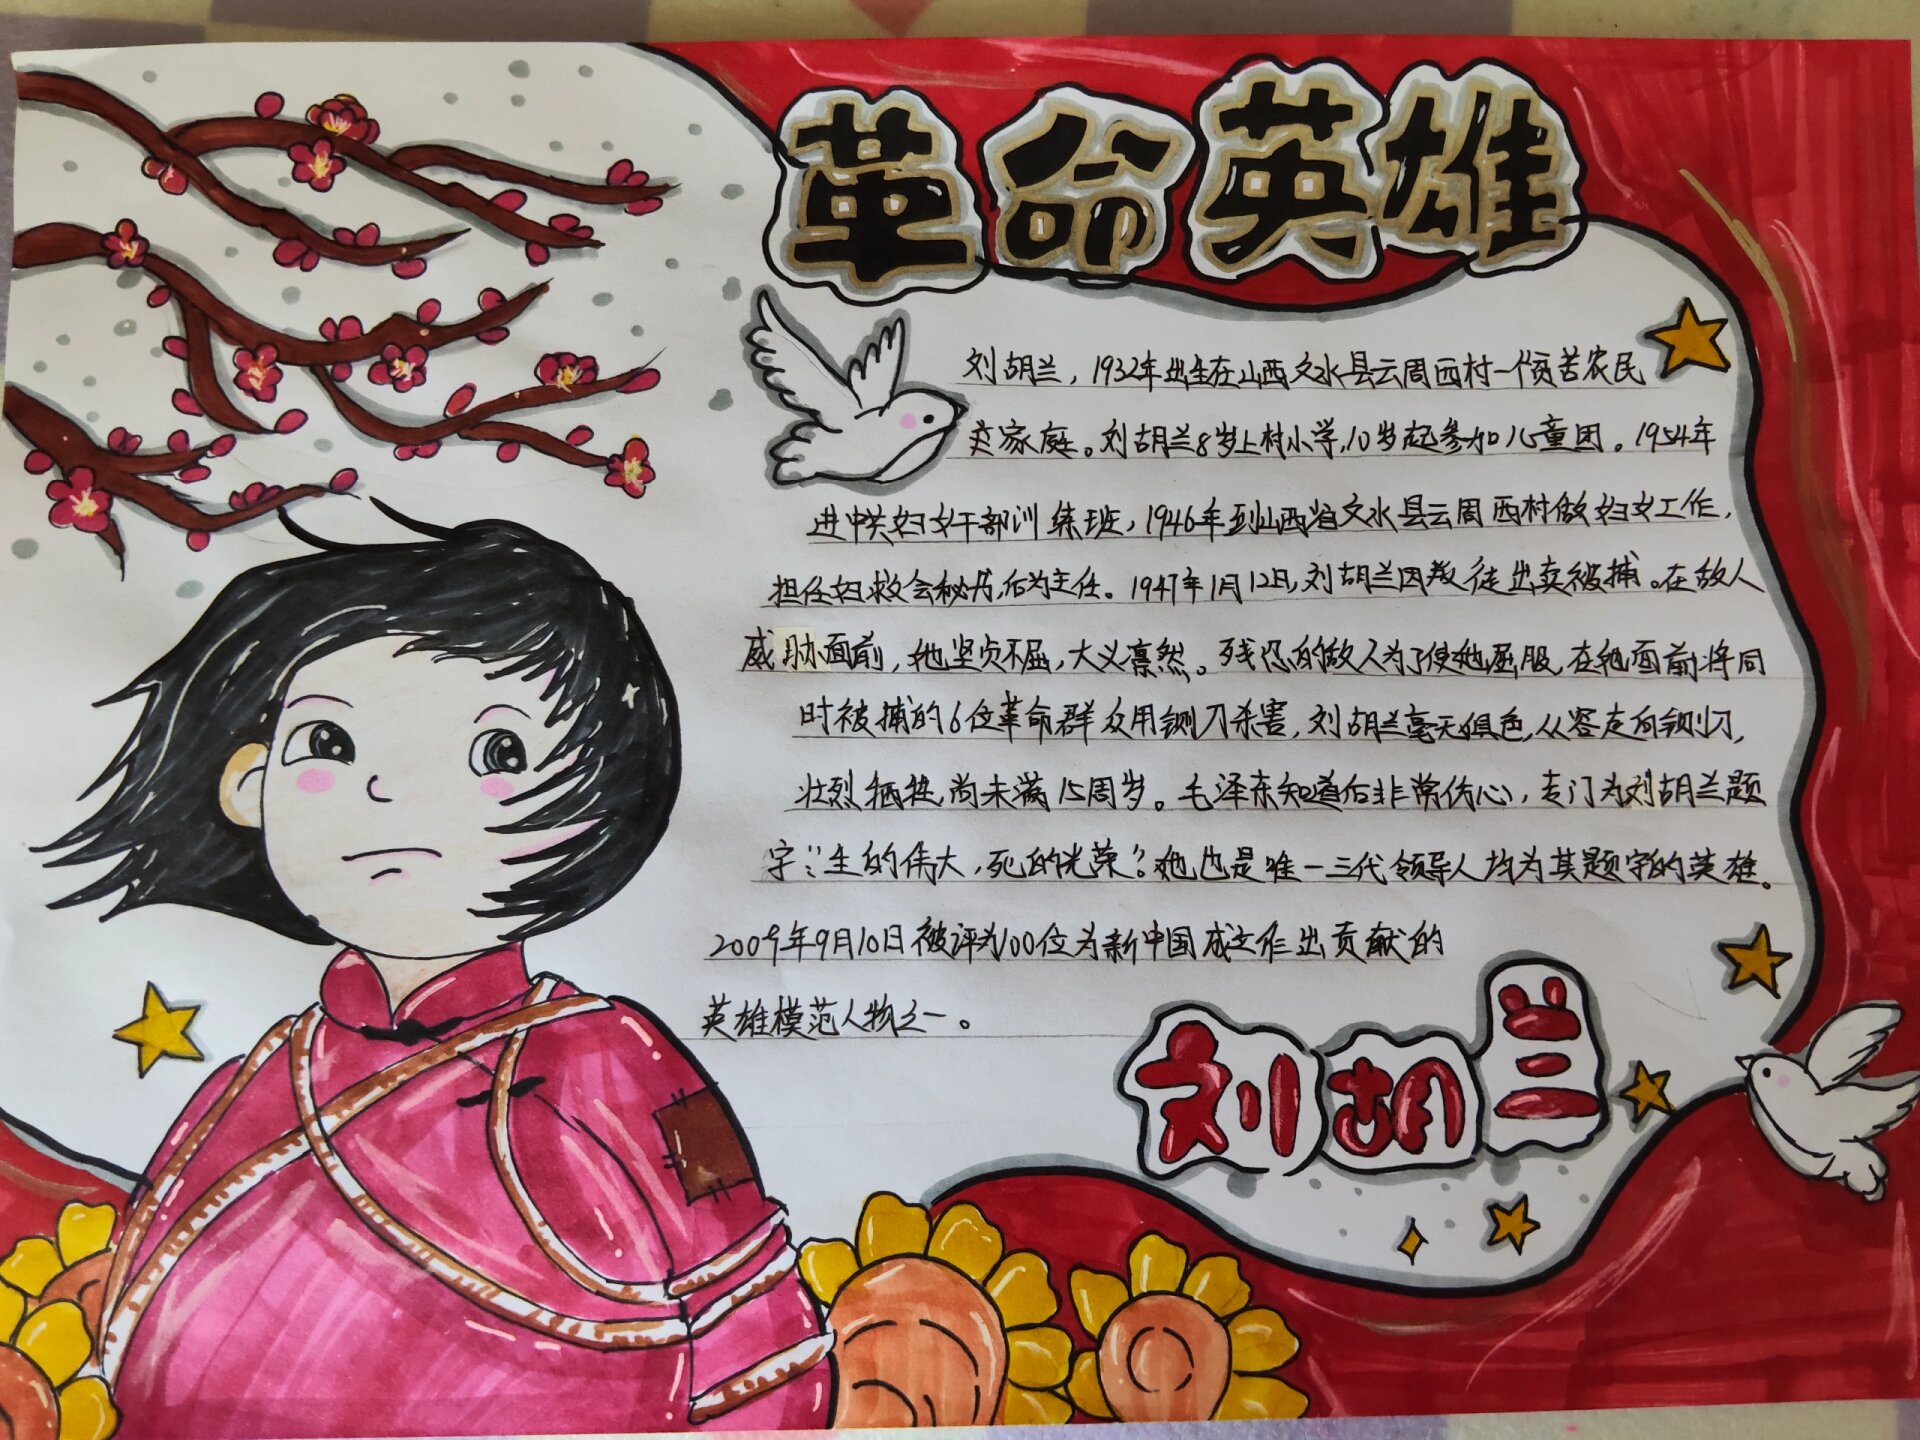 革命英雄
刘胡兰，1932年出生在山西文水县云周西村一个贫苦农民
家庭。刘胡兰8岁上村小学，10岁起参加儿童团。1954年
进中共妇女干部训练班，1946年到山西省文水县云周西村做妇女工作，
担任妇救会秘书，后为主任。1947年1月12日，刘胡兰因叛徒出卖被捕。在敌人
威胁面前，她坚贞不屈，大义凛然。残忍的敌人为了使她屈服，在她面前将同
时被捕的6位革命群众用铡刀杀害，刘胡兰毫无俱色，从容走向铡刀，
壮烈牺牲，尚未满15周岁。毛泽东知道后非常伤心，专门为刘胡兰题
字："生的伟大，死的光荣"？她也是唯一三代领导人均为其题字的英雄。
2009年9月10日被评为100位为新中国成立作出贡献的
英雄模范人物之一。
刘胡兰